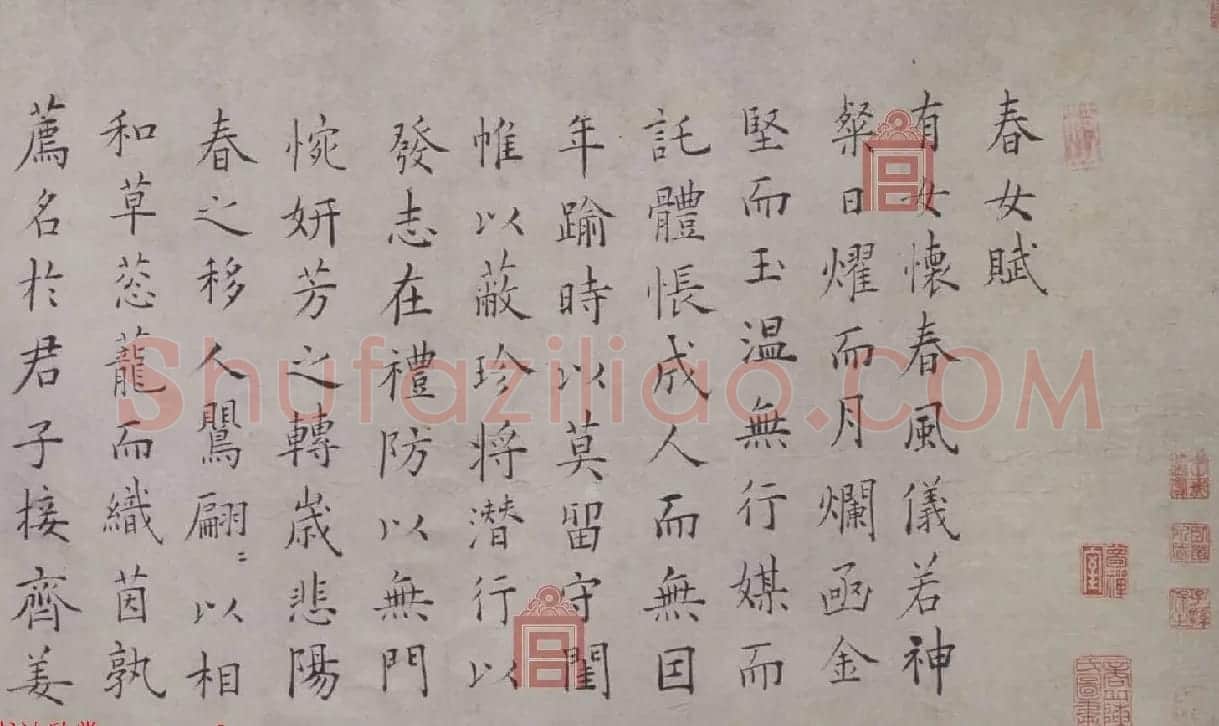 春女賦
有女懷春風儀若神
粲日燿而月爛函金
堅而玉温無行媒而
託體悵成人而無因
年踰時以莫留守閨
帷以蔽珍將潜行以
發志在禮防以無門
惋妍芳之轉歲悲陽
春之移人鸎翩〻以相
和草蒁蘢而織茵孰
薦名於君子接齊姜
Shufaziliao.COM